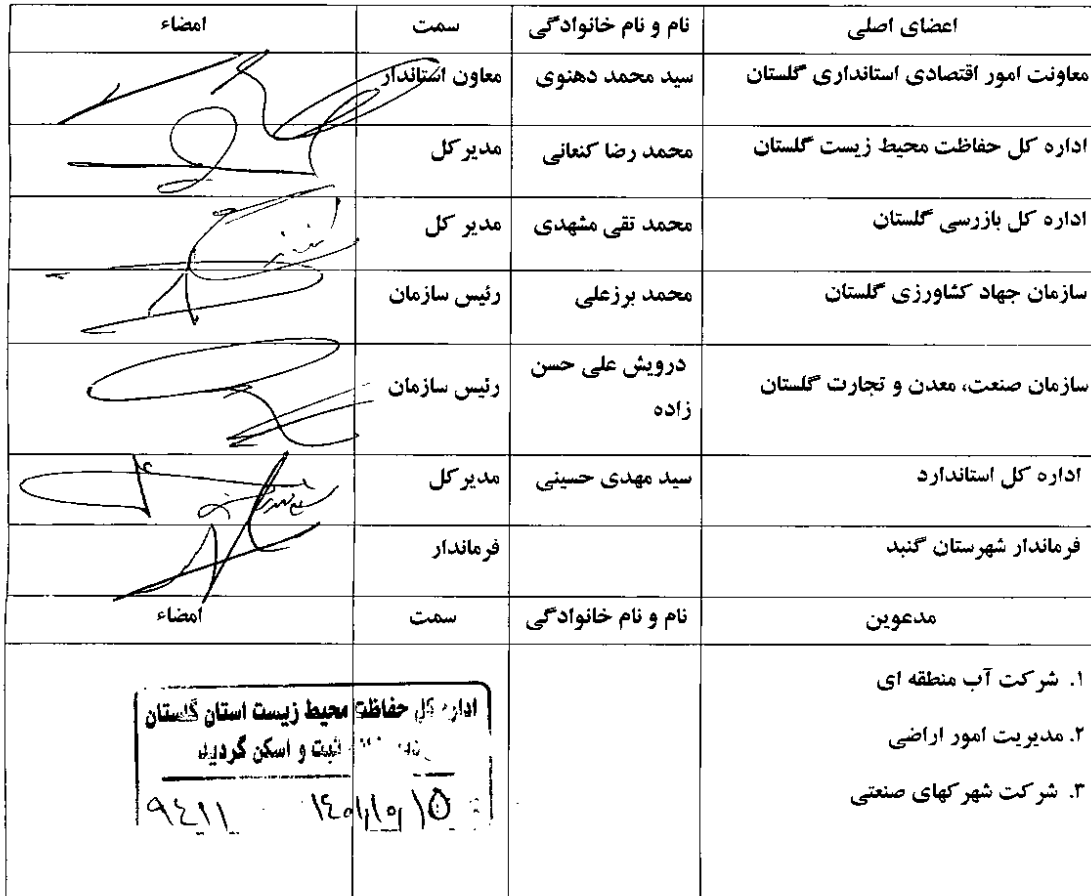 اعضای اصلی نام و نام خانوادگی سمت امضاء
معاونت امور اقتصادی استانداری گلستان سید محمد دهنوی معاون استاندار
اداره کل حفاظت محیط زیست گلستان محمد رضا کنعانی مدیر کل
اداره کل بازرسی گلستان محمد تقی مشهدی مدیر کل
سازمان جهاد کشاورزی گلستان محمد برزعلی رئیس سازمان
سازمان صنعت، معدن و تجارت گلستان درویش علی حسن زاده رئیس سازمان
اداره کل استاندارد سید مهدی حسینی مدیر کل
فرماندار شهرستان گنبد فرماندار
مدعوین نام و نام خانوادگی سمت امضاء
۱. شرکت آب منطقه ای
۲. مدیریت امور اراضی
۳. شرکت شهرکهای صنعتی
اداره کل حفاظت محیط زیست استان گلستان
ثبت و اسکن گردید